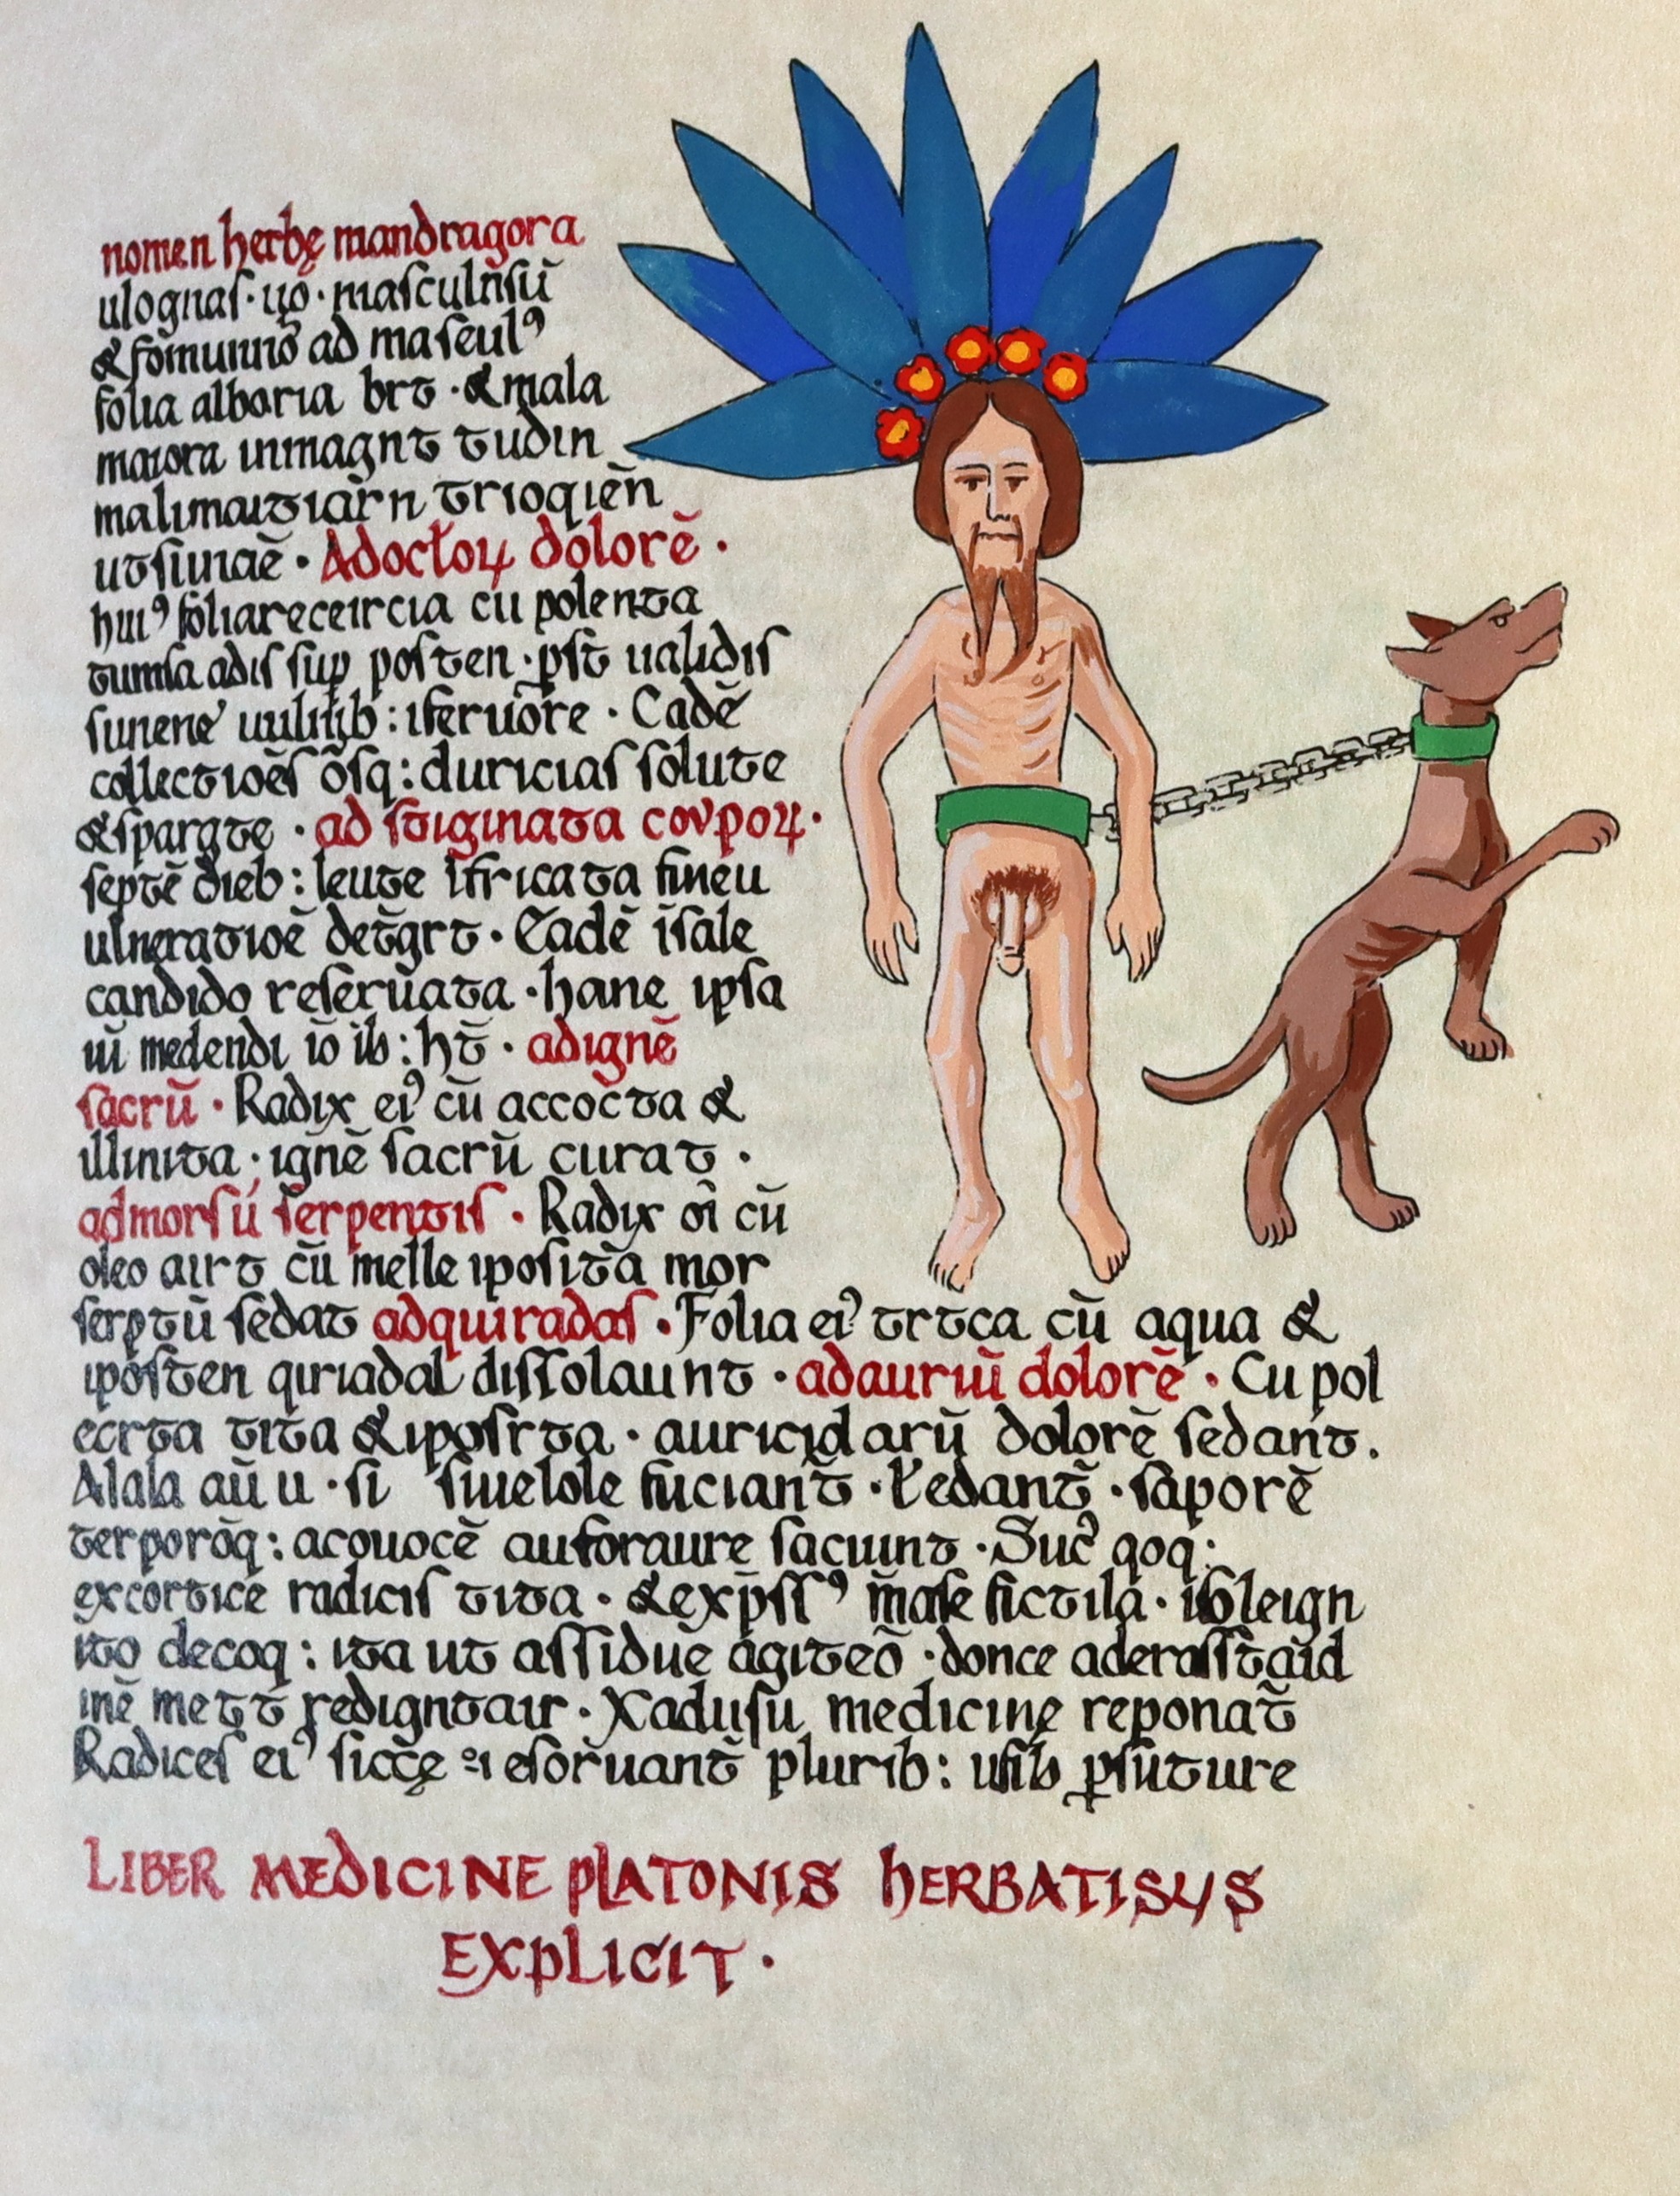 nomen herbę mandragora
ulognaſ · uo᷒ · maſculn̄ſū
& fōmunnō ad maſeulꝰ
folia alboria brt · & mala
maiora inmagnt tudin
malimaitiar̄n trioqien̄
utſiuiaē · Adoctoꝝ dolorē ·
huiꝰ foliareceircia cū polenta
tumſa adiſ ſuꝑ poſten · pſt̄ ualidiſ
ſunene᾽ uulnib : iferuōre · Cadē
collectioēſ ōſq : duriciaſ ſolute
& ſpargte · ad ſtiginata covpoꝝ ·
ſeptē dieb : leute īfricata fineu
ulneratioē det̄grt · Cadē īſale
candido reſerūata · hane ipſa
uī medendi īo ib : ht̄ · adignē
ſacrū · Radix eiꝰ cū accocta &
illinita · ignē ſacrū curat ·
admorſū ſerpentiſ · Radix oi cū
oleo airt cū melle ipoſitā mor
ſerptū ſedat adquiradaſ · Folia eiꝰ trtca cū aqua &
ipoſten qiriadal diſſolaunt · adauriū dolorē · Cu pol
ecrta tita & ipoſrta · auricidarū dolorē ſedant .
Alala aū u · ſi ſiuelole fuciant̄ · ledant̄ · ſaporē
terporāq : acouocē auforaure ſaciunt · Sucꝰ qoq :
excortice radiciſ tita · & exp̄ſſꝰ m̄aſe fictila · ībleign
ito decoq : ita ut aſſiduē agiteō · donce aderaſſtaīd
inē mett redigntair · Xaduſu medicinę reponat̄
Radiceſ eiꝰ ſiccę eſoruant̄ plurib : uſib pſūture
LIBER MEDICINE PLATONIS HERBATISYS
EXPLICIT ·